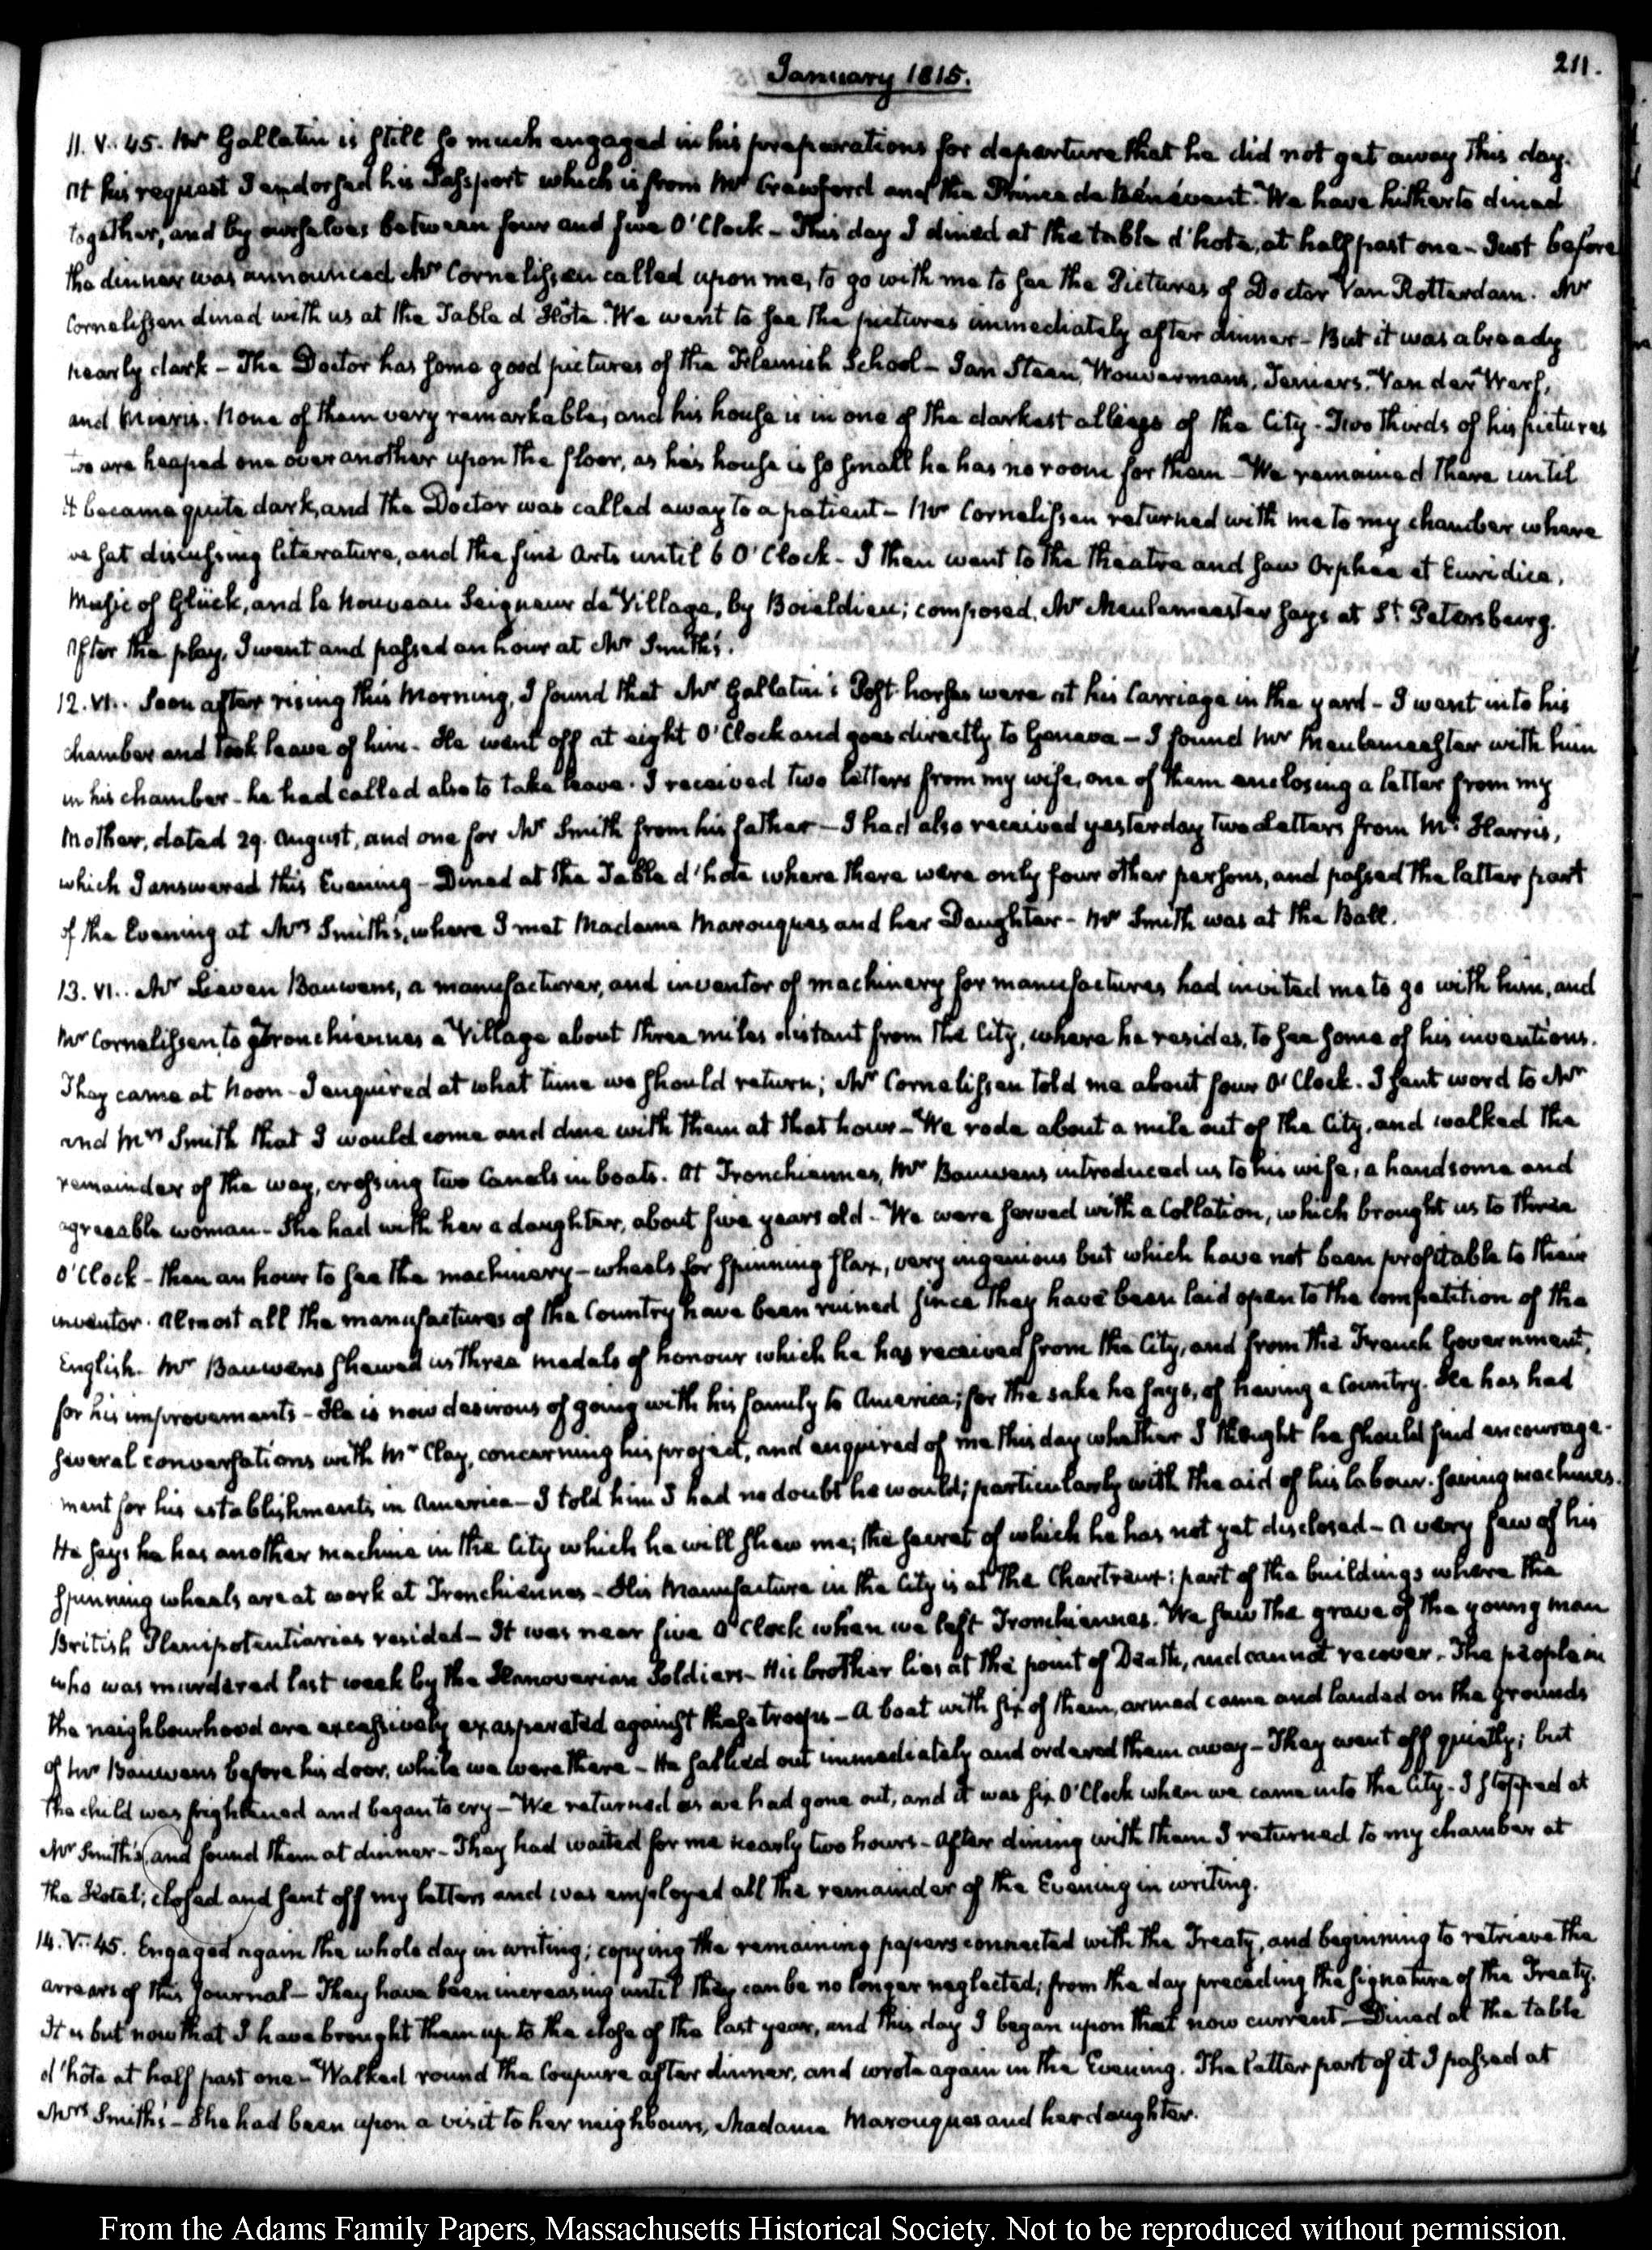 January 1815.
211.
11. V. 45. Mr Gallatin is still so much engaged in his preparations for departure that he did not get away this day.
At his request I endorsed his Passport which is from Mr Crawford and the Prince de Bénévent. We have hitherto dined
together, and by ourselves between four and five O'Clock - This day I dined at the table d'hote, at half past one - Just before
the dinner was announced Mr Cornelissen called upon me, to go with me to see the Pictures of Doctor Van Rotterdam. Mr
Cornelissen dined with us at the Table d'Hôte. We went to see the pictures immediately after dinner - But it was already
nearly dark - The Doctor has some good pictures of the Flemish School - Jan Steen, Wouvermans, Teniers, Van der Werf,
and Mieris. None of them very remarkable, and his house is in one of the darkest alleys of the City - Two thirds of his pictures
are heaped one over another upon the floor, as his house is so small he has no room for them - We remained there until
it became quite dark, and the Doctor was called away to a patient - Mr Cornelissen returned with me to my chamber where
we sat discussing literature, and the fine Arts until 6 O'Clock - I then went to the Theatre and saw Orphée et Euridice,
Music of Glück, and le Nouveau Seigneur de Village, by Boieldieu; composed, Mr Meulemeester says at St Petersburg.
After the play, I went and passed an hour at Mr Smith's.
12. VI. Soon after rising this Morning, I found that Mr Gallatin's Post-horses were at his Carriage in the yard - I went into his
chamber and took leave of him - He went off at eight O'Clock and goes directly to Geneva - I found Mr Meulemeester with him
in his chamber - he had called also to take leave. I received two letters from my wife, one of them enclosing a letter from my
Mother, dated 29. August, and one for Mr Smith from his father - I had also received yesterday two Letters from Mr Harris,
which I answered this Evening - Dined at the Table d'hote where there were only four other persons, and passed the latter part
of the Evening at Mrs Smith's, where I met Madame Marouques and her Daughter - Mr Smith was at the Ball.
13. VI. Mr Lieven Bauwens, a manufacturer, and inventor of machinery for manufactures had invited me to go with him, and
Mr Cornelissen, to Tronchiennes a Village about three miles distant from the City, where he resides, to see some of his inventions.
They came at Noon - I enquired at what time we should return; Mr Cornelissen told me about four O'Clock. I sent word to Mr
and Mrs Smith that I would come and dine with them at that hour - We rode about a mile out of the City, and walked the
remainder of the way, crossing two Canals in boats. At Tronchiennes, Mr Bauwens introduced us to his wife, a handsome and
agreeable woman - She had with her a daughter, about five years old - We were served with a Collation, which brought us to three
O'Clock - then an hour to see the machinery - wheels for spinning flax, very ingenious but which have not been profitable to their
inventor. Almost all the manufactures of the Country have been ruined since they have been laid open to the competition of the
English. Mr Bauwens shewed us three medals of honour which he has received from the City, and from the French Government,
for his improvements - He is now desirous of going with his family to America; for the sake he says, of having a Country. He has had
several conversations with Mr Clay, concerning his project, and enquired of me this day whether I thought he should find encourage-
ment for his establishments in America - I told him I had no doubt he would; particularly with the aid of his labour-saving machines.
He says he has another machine in the City which he will shew me; the secret of which he has not yet disclosed - A very few of his
spinning wheels are at work at Tronchiennes - His Manufacture in the City is at the Chartreux: part of the buildings where the
British Plenipotentiaries resided - It was near five O'Clock when we left Tronchiennes. We saw the grave of the young man
who was murdered last week by the Hanoverian Soldiers - His brother lies at the point of Death, and cannot recover. The people in
the neighbourhood are excessively exasperated against these troops - A boat with six of them, armed came and landed on the grounds
of Mr Bauwens before his door, while we were there - He sallied out immediately and ordered them away - They went off quietly; but
the child was frightened and began to cry - We returned as we had gone out, and it was six O'Clock when we came into the City - I stopped at
Mr Smith's, and found them at dinner - They had waited for me nearly two hours - After dining with them I returned to my chamber at
the Hotel; closed and sent off my letters and was employed all the remainder of the Evening in writing.
14. V. 45. Engaged again the whole day in writing; copying the remaining papers connected with the Treaty, and beginning to retrieve the
arrears of this Journal - They have been increasing until they can be no longer neglected; from the day preceding the signature of the Treaty.
It is but now that I have brought them up to the close of the last year, and this day I began upon that now current - Dined at the table
d'hôte at half past one - Walked round the Coupure after dinner, and wrote again in the Evening. The latter part of it I passed at
Mrs Smith's - She had been upon a visit to her neighbours, Madame Marouques and her daughter.
From the Adams Family Papers, Massachusetts Historical Society. Not to be reproduced without permission.